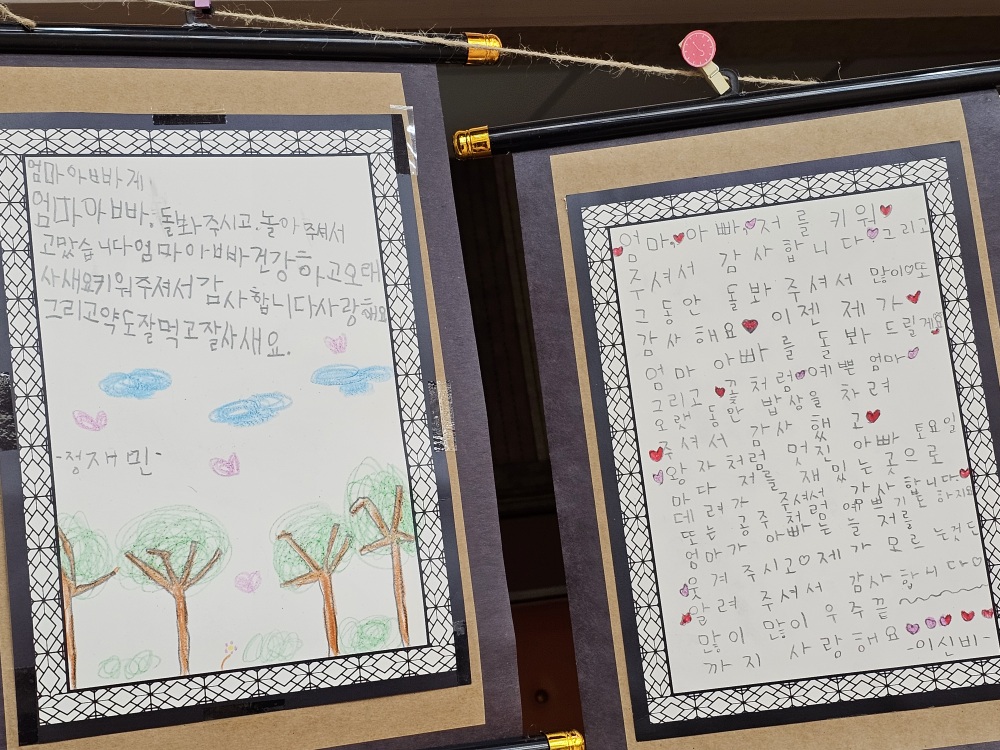 엄마아빠께
엄마아빠, 돌봐주시고. 놀아주셔서
고맜습니다엄마아빠건강하고오래
사새요키워주셔서감사합니다사랑해요
그리고약도잘먹고잘사새요.
-정재민-
엄마, 아빠, 저를 키워
주셔서 감사합니다 그리고
그동안 돌봐주셔서 많이 또
감사해요 이젠 제가
엄마 아빠를 돌봐드릴게요
그리고 꽃처럼 예쁜 엄마
오랫동안 밥상을 차려
주셔서 감사했고
왕자처럼 멋진 아빠 토요일
마다 저를 재밌는곳으로
데려가 주셔서 감사합니다.
또는 공주처럼 예쁘기뿐 하지요
엄마가 아빠는 늘 저를
웃겨 주시고 제가 모르는것든
알려 주셔서 감사합니다
많이 많이 우주끝
까지 사랑해요
-이신비-